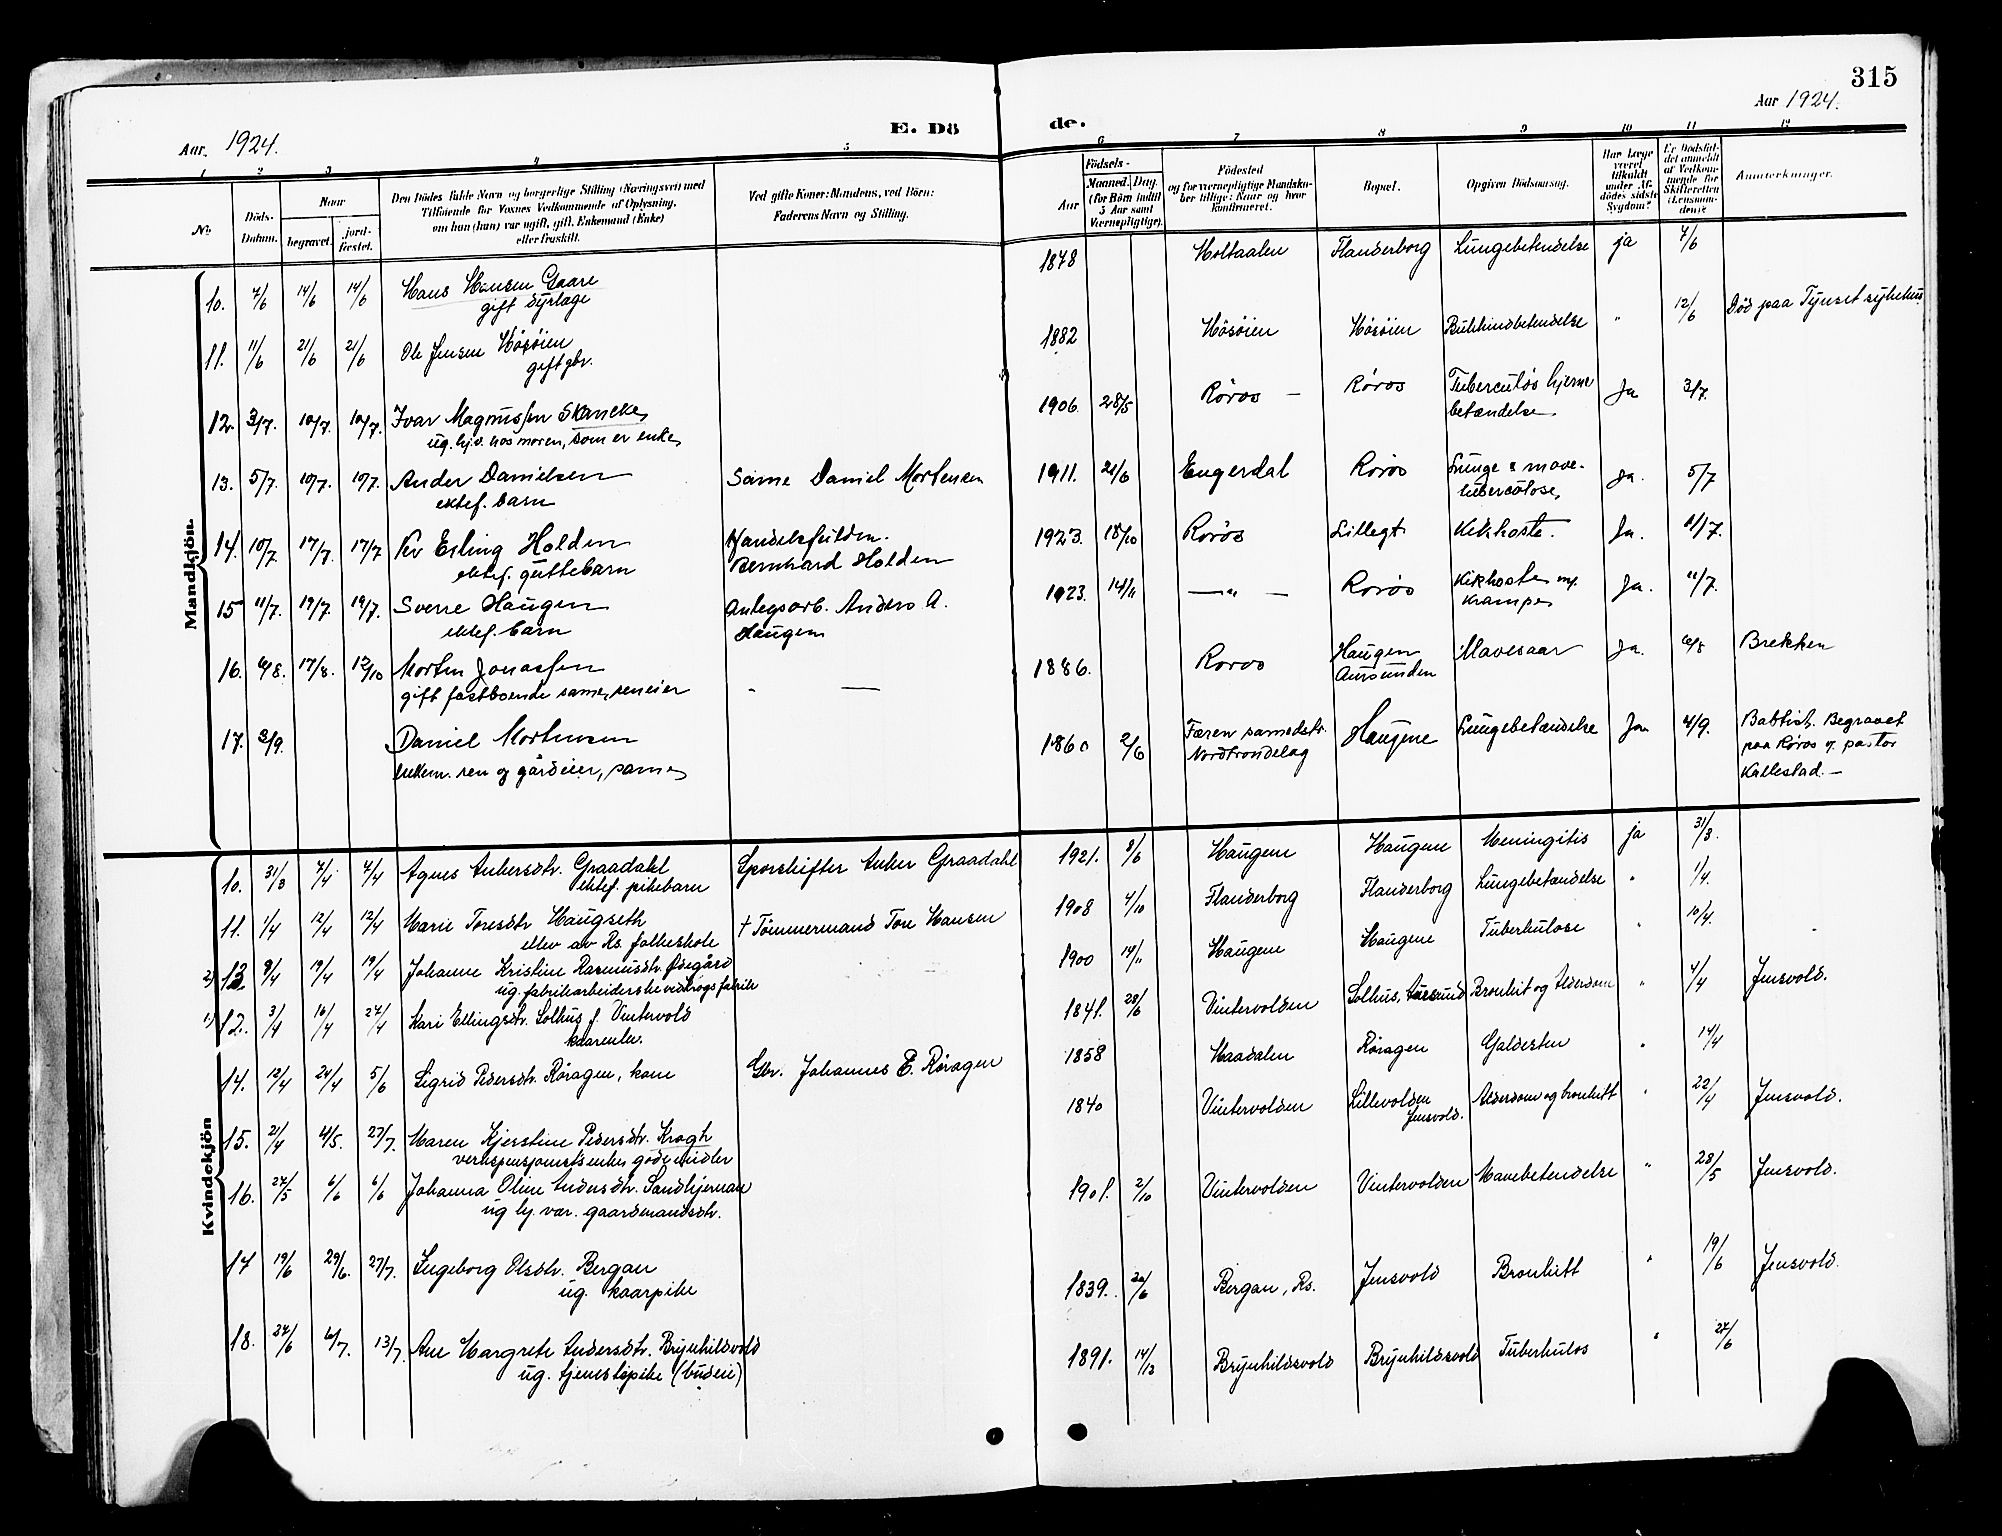 315
Aar. 1924.
E. Dö
de.
Aar 1924.
1 2 3 4 5 6 7 8 9 10 11 12
No.
Döds-
Datum.
Naar
begravet.
jord-
fæstet.
Den Dödes fulde Navn og borgerlige Stilling (Næringsvei) med
Tilföiende for Voxnes Vedkommende af Oplysning,
om han (hun) var ugift, gift, Enkemand (Enke)
eller fraskilt.
Ved gifte Koner: Mandens, ved Börn:
Faderens Navn og Stilling.
Födsels-
Aar
Maaned. Dag.
(for Börn indtil
5 Aar samt
Værnepligtige).
Födested
og for værnepligtige Mandska-
ber tillige: Naar og hvor
konfirmeret.
Bopæl.
Opgiven Dödsaarsag.
Har Læge
været
tilkaldt
under Af-
dödes sidste
Sygdom?
Er Dödsfal-
det anmeldt
af Vedkom-
mende for
Skifteretten
(Lensman-
den)?
Anmærkninger.
Mandkjön.
10. 7/6 14/6 14/6 Hans Hansen Gaare 1878 Holtaalen Flanderborg Lungebetendelse ja 7/6
gift dyrlæge
11. 11/6 21/6 21/6 Ole Jensen Høsøien 1882 Høsøien Høsøien Blikkindbetendelse " 12/6 Død paa Tynset sykehus
gift gbr.
12. 3/7. 10/7. 10/7. Ivar Magnussen Skancke, 1906. 28/5 Røros — Røros Tuberculøs hjerne Ja 3/7.
ug. hj.d. hos moren, som er enke, betændelse.
13. 5/7. 10/7. 10/7. Ander Danielsen Same Daniel Mortensen 1911. 21/6 Engerdal Røros Lunge & mave- Ja. 5/7
ektef. barn tuberculose,
14. 10/7. 17/7. 17/7 Erling Holden 1923. 18/10 Røros Lillegt. Kikhoste. Ja. 11/7.
ektef. guttebarn Bernhard Holden
15 11/7. 19/7. 19/7. Sverre Haugen Anlegsarb. Anders A. 1923. 14/11 — " — Røros Kikhoste m. Ja. 11/7.
ektef. barn Haugen krampe,
16. 6/8. 17/8. 12/10 Morten Jonassen 1886. Røros Haugen Mavesaar Ja. 6/8 Brekken
gift fastboende same, reneier " — Aursunden
17. 2/9. Daniel Mortensen 1860 2/6 Færen samedistr. Haugene Lungebetændelse Ja 4/9. Babtist. Begravet
enkem. ren og gårdeier, same, Nordtrondelag paa Røros v. pastor
Kallestad. —
Kvindekjön
10. 31/3 7/4 7/4 Agnes Ankersdtr. Graadahl Sporskifter Anker Graadahl 1921. 8/6 Haugene Haugene Meningitis ja 31/3.
ektef. pikebarn
11. 1/4 12/4 12/4 Marie Toresdtr Haugseth † Tømmermand Tore Hansen 1908 4/10 Flanderborg Flanderborg Lungebetændelse " 1/4.
elev av Rs. folkeskole
2) 13. 8/4 19/4 19/4 Johanne Kristine Rasmusdtr. Ødegård 1900 14/11 Haugene Haugene Tuberkulose " 10/4.
ug. fabrikarbeiderske
1) 12. 3/4 16/4 27/4 Kari Ellingsdtr. Solhus f. Vintervold 1841. 28/6 Vintervolden Solhus, Aursund Bronkit og Alderdom " 4/4 Jensvold.
kaarenke.
14. 12/4 24/4 5/6 Sigrid Pedersdtr. Røragen, kone Gbr. Johannes E. Røragen 1858 Haadalen Røragen Galdesten " 14/4
15. 21/4 4/5. 27/7. Maren Kjerstine Pedersdtr. Krogh 1840 Vintervolden Lillevolden Alderdom og bronkitt " 22/4 Jensvold.
verkspensjonistsenke Jensvold.
16. 27/5 6/6 6/6 Johanna Oline Andersdtr. Sandkjernan 1901. 2/10 Vintervolden Vintervolden Mavebetendelse " 28/5 Jensvold.
ug hj. vær. gaardmandsdtr.
17 19/6 29/6. 27/7. Ingeborg Olsdtr. Bergan 1839. 20/6 Bergan, Rs. Jensvold Bronkitt " 19/6 Jensvold.
ug. kaarpike
18. 27/6 6/7. 13/7. Ane Margrete Andersdtr. Brynhildsvold 1891. 14/12 Brynhildsvold Brynhildsvold Tuberkulos " 27/6
ug. tjenestepike (budeie)